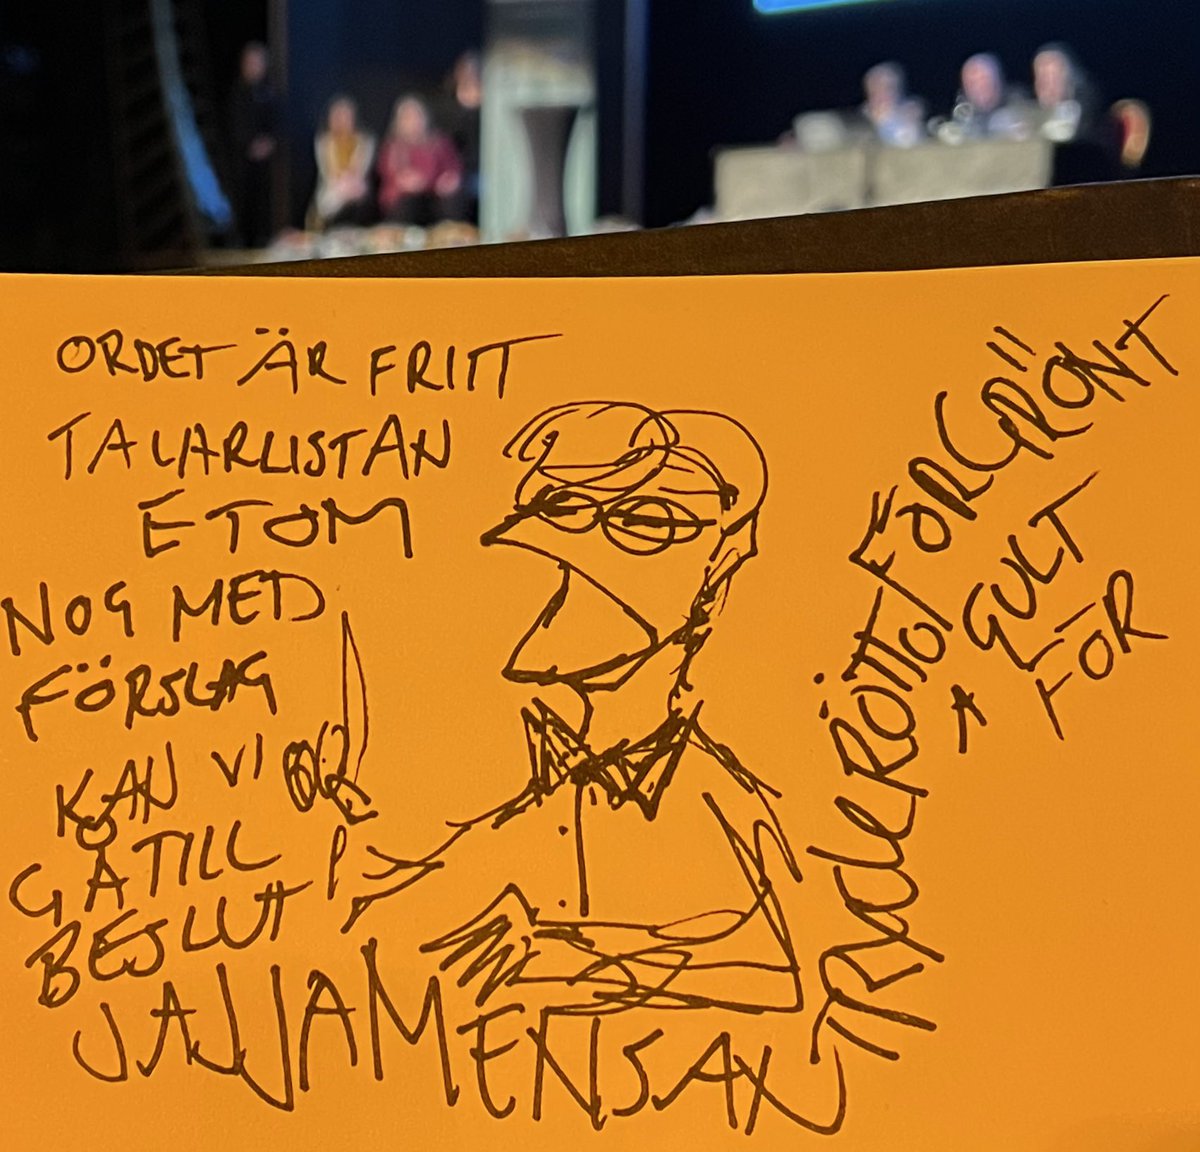 ORDET ÄR FRITT
TALARLISTAN
E TOM
NOG MED
FÖRSLAG
KAN VI
GÅ TILL
BESLUT
JAJJAMENSAN
TRYCK RÖTT FÖR GRÖNT
GULT
FÖR